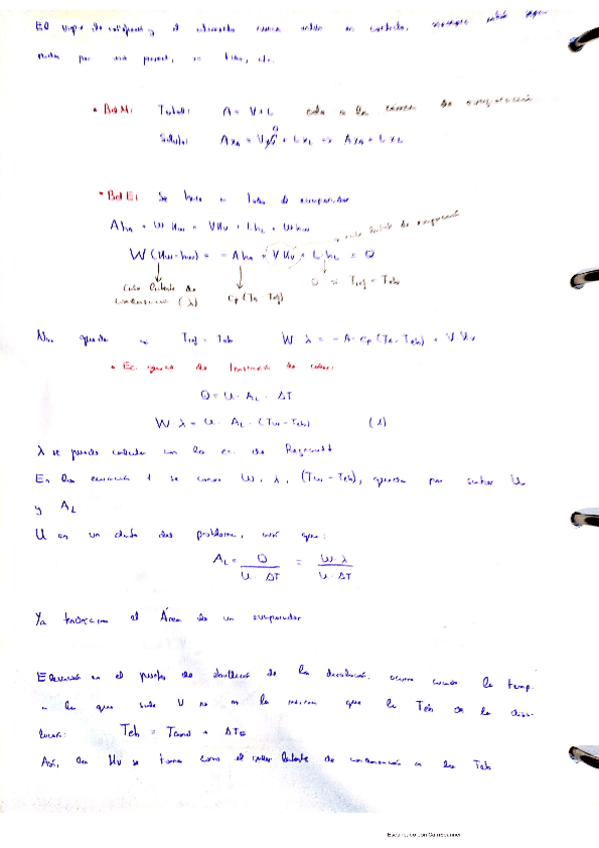 El vapor de calefacción y el alimento nunca entran en contacto, siempre están sepa-
rados por una pared, un tubo, etc.
• Bal M: Total: A = V + L esto en la cámara de evaporación
Soluto: A xA = V yV + L xL => A xA = L xL
• Bal E: Se hace a todo el evaporador
A hA + W HW = V HV + L hL + W hW
W (HW - hW) = - A hA + V HV + L hL = Q
Calor latente de cp (TA - Tref) 0 si Tref = Teb
condensación (λ)
Nos queda si Tref = Teb W λ = - A · cp (TA - Teb) + V · HV
• Ec. general de transmisión de calor:
Q = U · AL · ΔT
W · λ = U · AL · (TW - Teb) (1)
λ se puede calcular con la ec. de Regnault
En la ecuación 1 se conoce W, λ, (TW - Teb), queda por saber U
y AL
U es un dato del problema, así que:
AL = Q / U · ΔT = W · λ / U · ΔT
Ya tenemos el Área de un evaporador
Elevación en el punto de ebullición de la disolución: ocurre cuando la temp.
a la que sale V no es la misma que la Teb de la diso-
lución: Teb = Tcond + ΔTe
Así, la HV se toma como el calor latente de condensación a la Teb
Escaneado con CamScanner